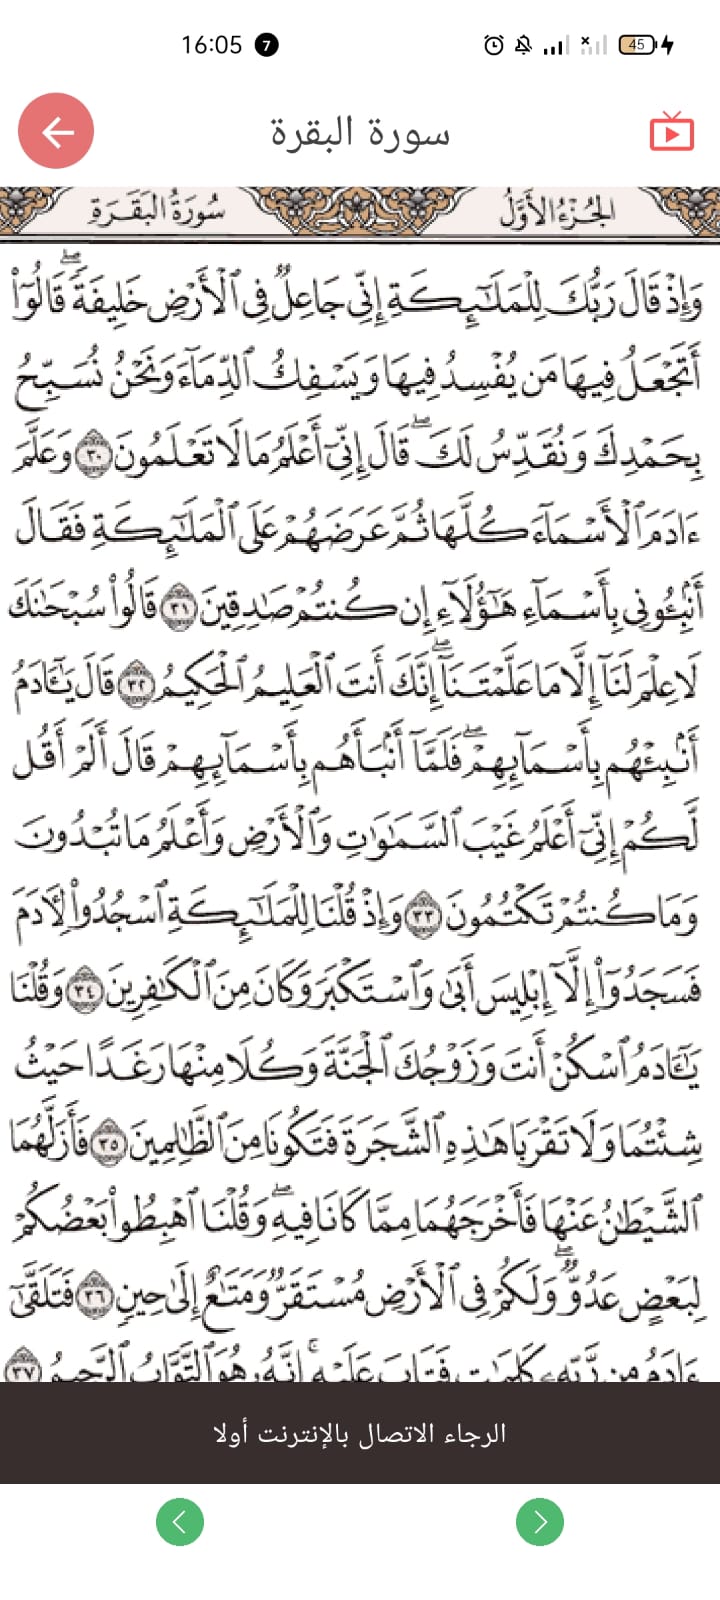 16:05 7 45
سورة البقرة
الجُزْءُ الأَوَّلُ سُورَةُ البَقَرَةِ
وَإِذْ قَالَ رَبُّكَ لِلْمَلَٰٓئِكَةِ إِنِّي جَاعِلٌ فِي ٱلْأَرْضِ خَلِيفَةًۖ قَالُوٓا۟
أَتَجْعَلُ فِيهَا مَن يُفْسِدُ فِيهَا وَيَسْفِكُ ٱلدِّمَآءَ وَنَحْنُ نُسَبِّحُ
بِحَمْدِكَ وَنُقَدِّسُ لَكَۖ قَالَ إِنِّيٓ أَعْلَمُ مَا لَا تَعْلَمُونَ ٣٠ وَعَلَّمَ
ءَادَمَ ٱلْأَسْمَآءَ كُلَّهَا ثُمَّ عَرَضَهُمْ عَلَى ٱلْمَلَٰٓئِكَةِ فَقَالَ
أَنۢبِـُٔونِي بِأَسْمَآءِ هَٰٓؤُلَآءِ إِن كُنتُمْ صَٰدِقِينَ ٣١ قَالُوا۟ سُبْحَٰنَكَ
لَا عِلْمَ لَنَآ إِلَّا مَا عَلَّمْتَنَآۖ إِنَّكَ أَنتَ ٱلْعَلِيمُ ٱلْحَكِيمُ ٣٢ قَالَ يَٰٓـَٔادَمُ
أَنۢبِئْهُم بِأَسْمَآئِهِمْۖ فَلَمَّآ أَنۢبَأَهُم بِأَسْمَآئِهِمْ قَالَ أَلَمْ أَقُل
لَّكُمْ إِنِّيٓ أَعْلَمُ غَيْبَ ٱلسَّمَٰوَٰتِ وَٱلْأَرْضِ وَأَعْلَمُ مَا تُبْدُونَ
وَمَا كُنتُمْ تَكْتُمُونَ ٣٣ وَإِذْ قُلْنَا لِلْمَلَٰٓئِكَةِ ٱسْجُدُوا۟ لِءَادَمَ
فَسَجَدُوٓا۟ إِلَّآ إِبْلِيسَ أَبَىٰ وَٱسْتَكْبَرَ وَكَانَ مِنَ ٱلْكَٰفِرِينَ ٣٤ وَقُلْنَا
يَٰٓـَٔادَمُ ٱسْكُنْ أَنتَ وَزَوْجُكَ ٱلْجَنَّةَ وَكُلَا مِنْهَا رَغَدًا حَيْثُ
شِئْتُمَا وَلَا تَقْرَبَا هَٰذِهِ ٱلشَّجَرَةَ فَتَكُونَا مِنَ ٱلظَّٰلِمِينَ ٣٥ فَأَزَلَّهُمَا
ٱلشَّيْطَٰنُ عَنْهَا فَأَخْرَجَهُمَا مِمَّا كَانَا فِيهِۖ وَقُلْنَا ٱهْبِطُوا۟ بَعْضُكُمْ
لِبَعْضٍ عَدُوٌّۖ وَلَكُمْ فِي ٱلْأَرْضِ مُسْتَقَرٌّ وَمَتَٰعٌ إِلَىٰ حِينٍ ٣٦ فَتَلَقَّىٰٓ
ءَادَمُ مِن رَّبِّهِۦ كَلِمَٰتٍ فَتَابَ عَلَيْهِۚ إِنَّهُۥ هُوَ ٱلتَّوَّابُ ٱلرَّحِيمُ ٣٧
الرجاء الاتصال بالإنترنت أولا